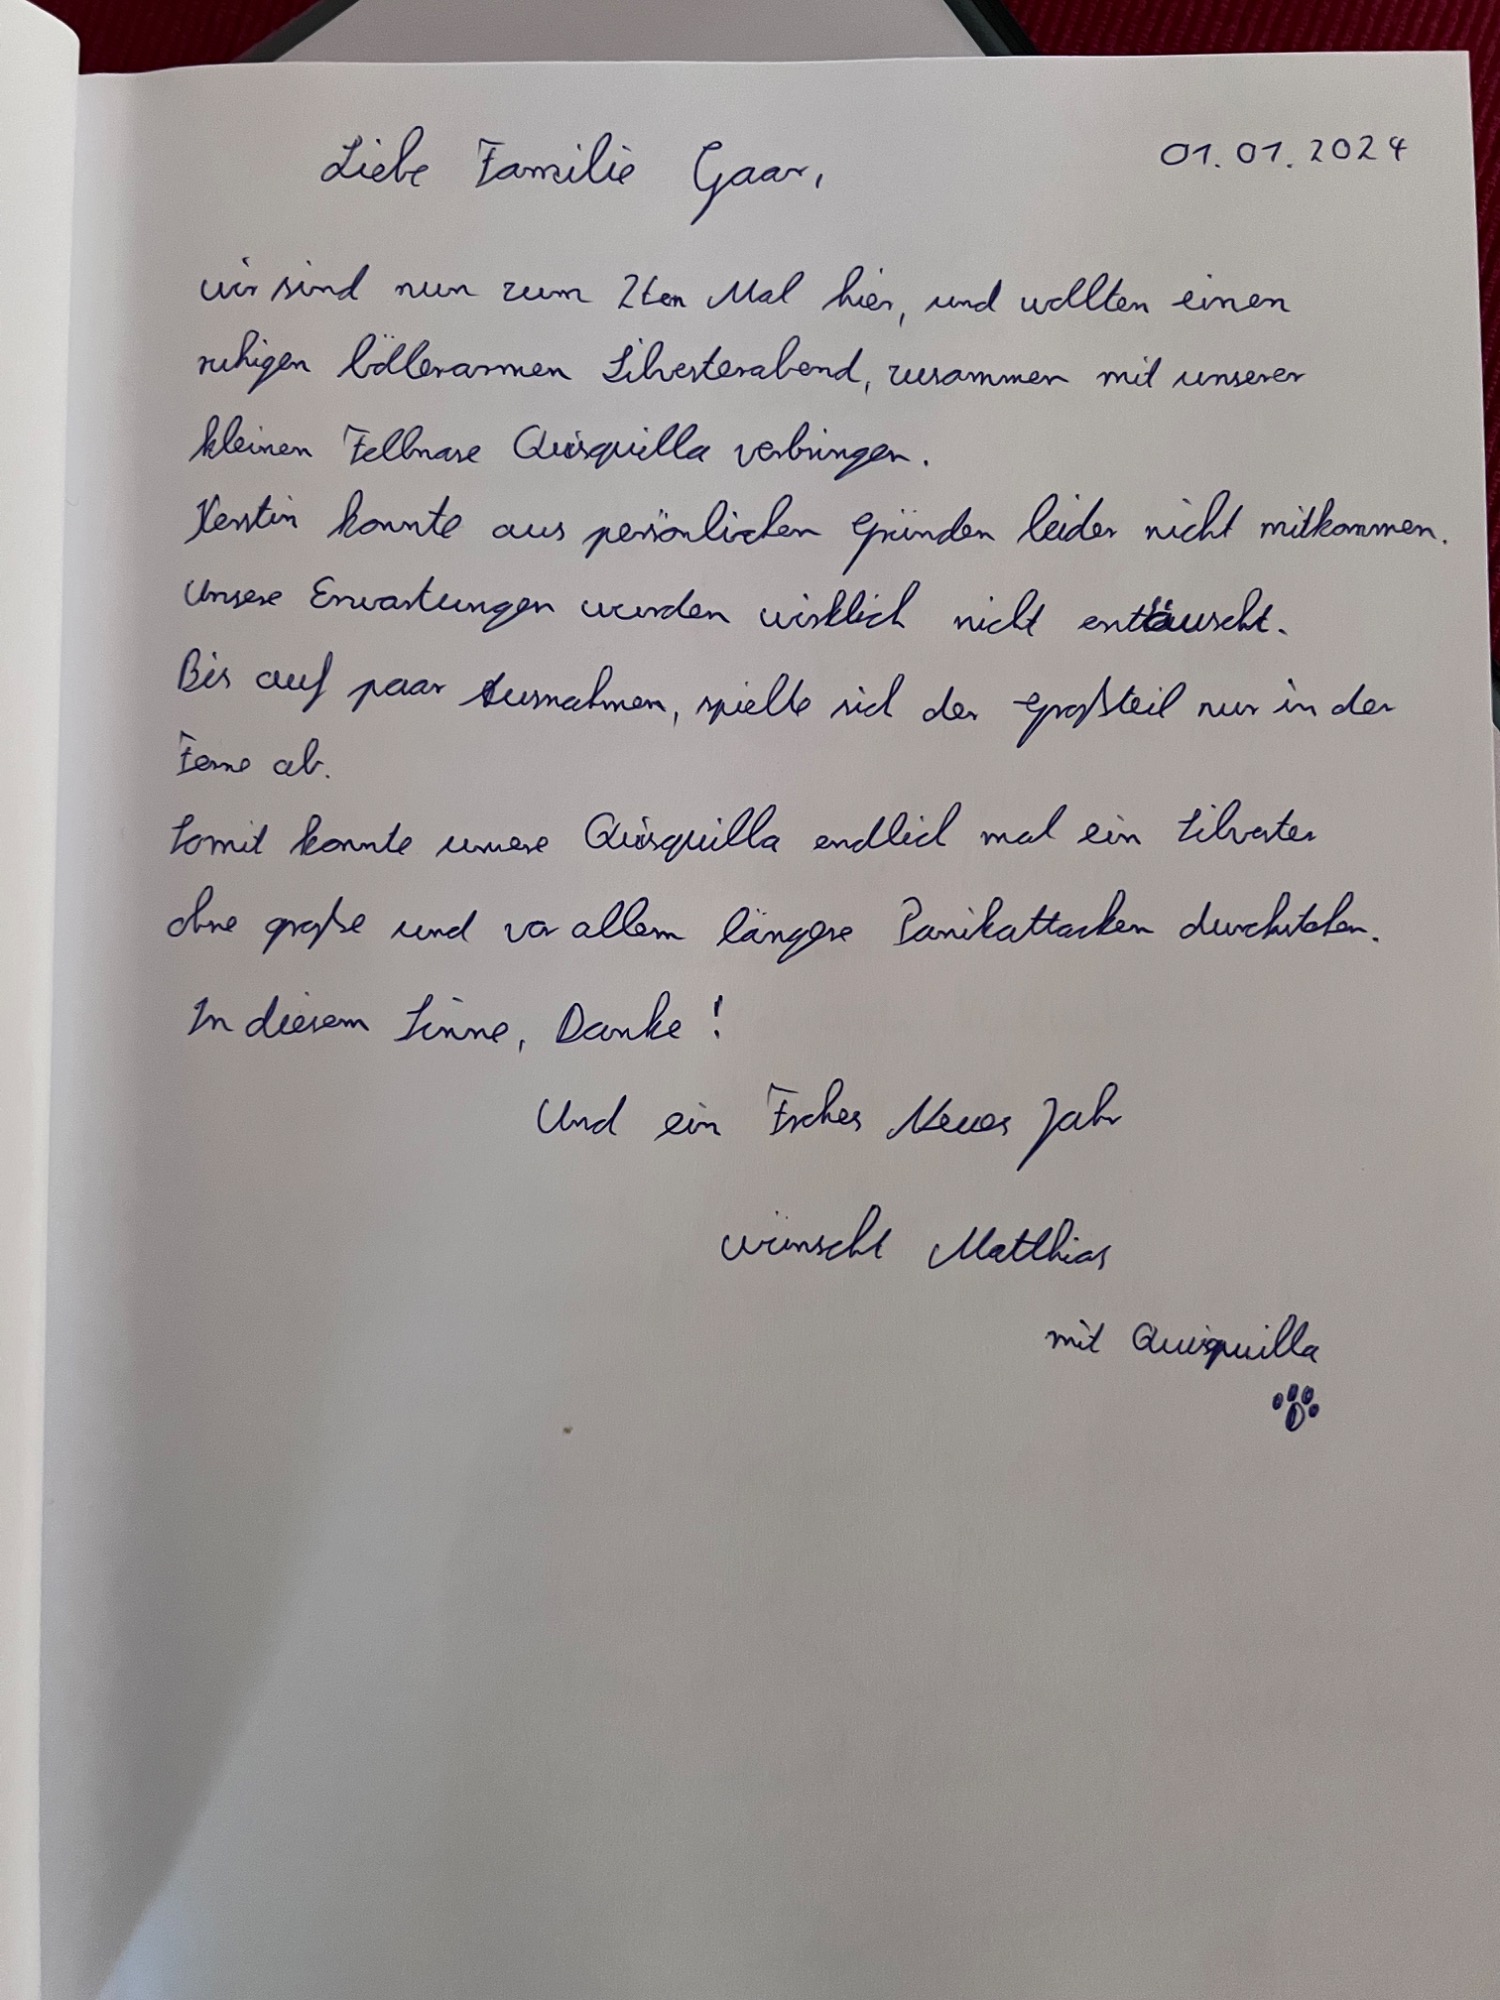 Liebe Familie Gaar, 01.01.2024
wir sind nun zum 2ten Mal hier, und wollten einen
ruhigen böllerarmen Silvesterabend, zusammen mit unserer
kleinen Fellnase Quisquilla verbringen.
Kerstin konnte aus persönlichen Gründen leider nicht mitkommen.
Unsere Erwartungen wurden wirklich nicht entäuscht.
Bis auf paar Ausnahmen, spielte sich der Großteil nur in der
Ferne ab.
Somit konnte unsere Quisquilla endlich mal ein Silvester
ohne große und vor allem längere Panikattacken durchstehen.
In diesem Sinne, Danke!
Und ein Frohes Neues Jahr
wünscht Matthias
mit Quisquilla